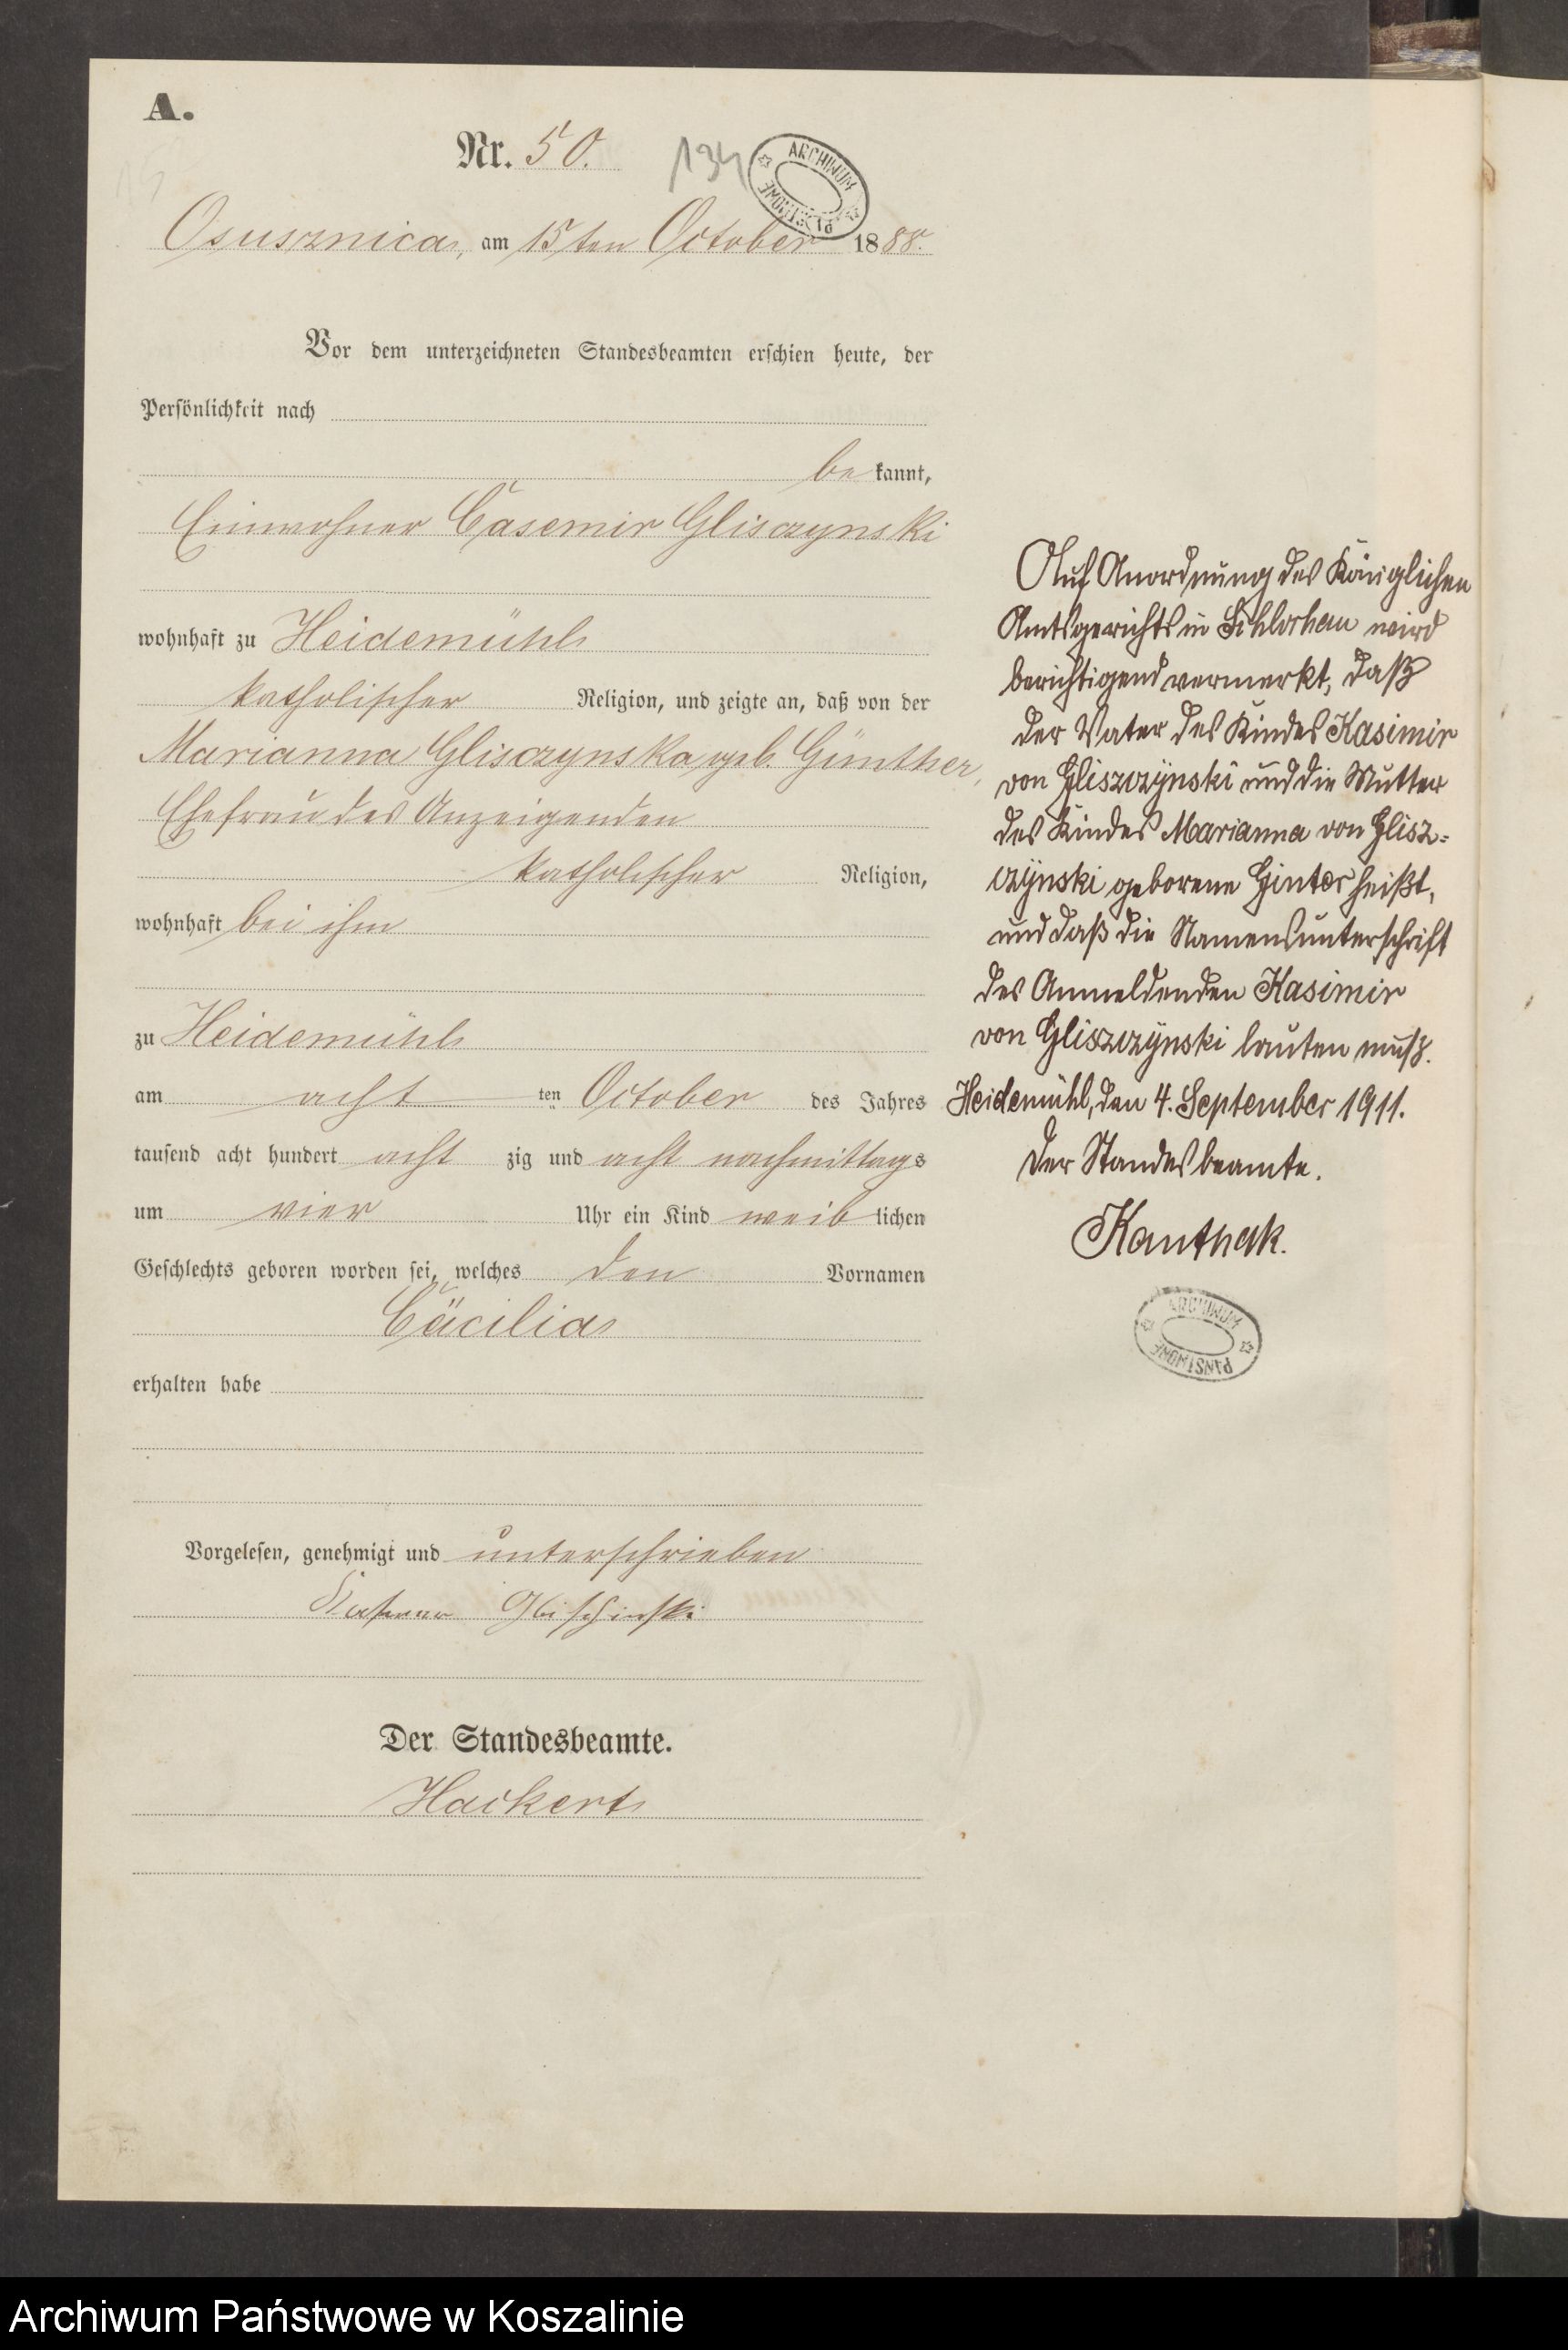 A.
Nr. 50.
134
ARCHIWUM PAŃSTWOWE
Osusznica, am 15ten October 1888.
Vor dem unterzeichneten Standesbeamten erschien heute, der
Persönlichkeit nach
be kannt,
Einwohner Casemir Glisczynski
wohnhaft zu Heidemühl
katholischer Religion, und zeigte an, daß von der
Marianna Glisczynska geb. Günther,
Ehefrau des Anzeigenden
katholischer Religion,
wohnhaft bei ihm
zu Heidemühl
am acht ten October des Jahres
tausend acht hundert acht zig und acht nachmittags
um vier Uhr ein Kind weib lichen
Geschlechts geboren worden sei, welches den Vornamen
Cäcilia
erhalten habe
Vorgelesen, genehmigt und unterschrieben
Glischinski
Der Standesbeamte.
Hackert
Auf Anordnung des Königlichen
Amtsgerichts in Schlochau wird
berichtigend vermerkt, daß
der Vater des Kindes Kasimir
von Gliszczynski und die Mutter
des Kindes Marianna von Glisz-
czynski geborene Ginter heißt,
und daß die Namensunterschrift
des Anmeldenden Kasimir
von Gliszczynski lauten muß.
Heidemühl, den 4. September 1911.
Der Standesbeamte.
Kanthak.
ARCHIWUM PAŃSTWOWE
Archiwum Państwowe w Koszalinie